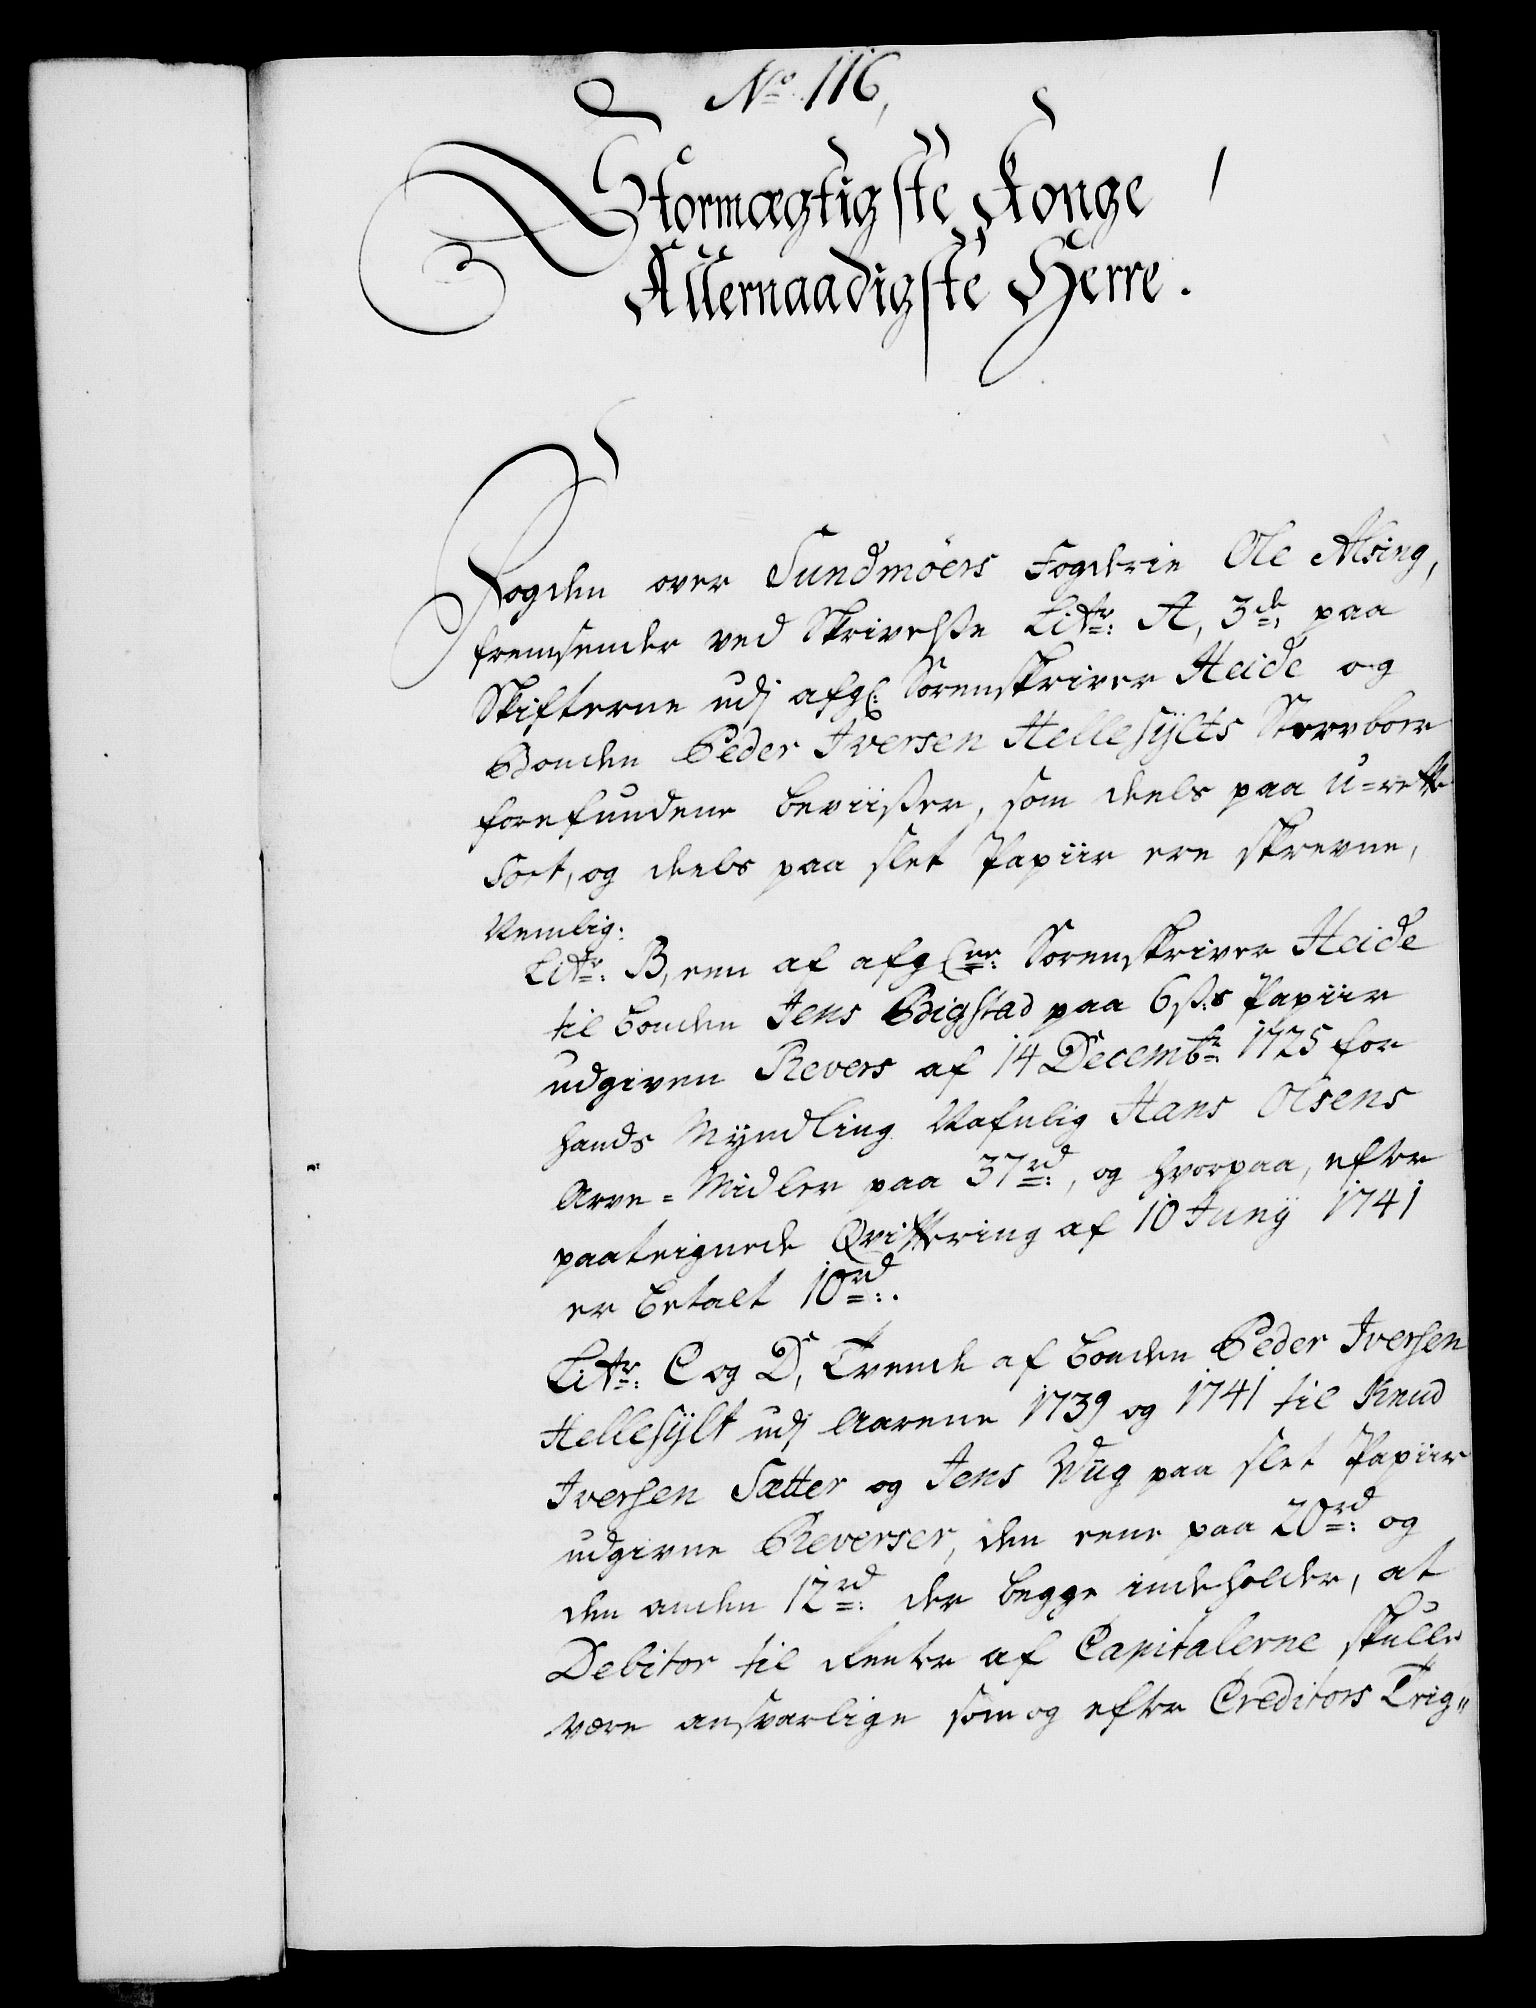 No. 116,
Stormægtigste Konge
Allernaadigste Herre.
Fogden over Sundmöers Fogderie Ole Alsing,
fremsender ved Skrivelsse Littr: A, 3de, paa
Skifterne udj afgl: Sorenskriver Heide og
Bonden Peder Iversen Hellesylts Stervboer
forefundene beviisser, som deels paa u-rette
Sort, og deels paa slet Papiir ere skrevne,
Nemlig:
Littr: B, een af afglne: Sorenskriver Heide
til bonden Jens Bigstad paa 6 ß:s Papiir
udgiven Revers af 14 Decembr: 1725 for
hands Myndling Nafnlig Hans Olsens
Arve-Midler paa 37 rd:, og hvorpaa, efter
paateignede Qvittering af 10 Juny 1741
er betalt 10 rd:.
Littr: C og D, Tvende af bonden Peder Iversen
Hellesylt udj Aarene 1739 og 1741 til Knud
Iversen Sætter og Jens Wiig paa slet Papiir
udgivne Reverser, den eene paa 20 rd: og
den anden 12 rd: der begge indeholder, at
Debitor til Renter af Capitalerne skulle
være ansvarlige som og efter Creditors Trig"